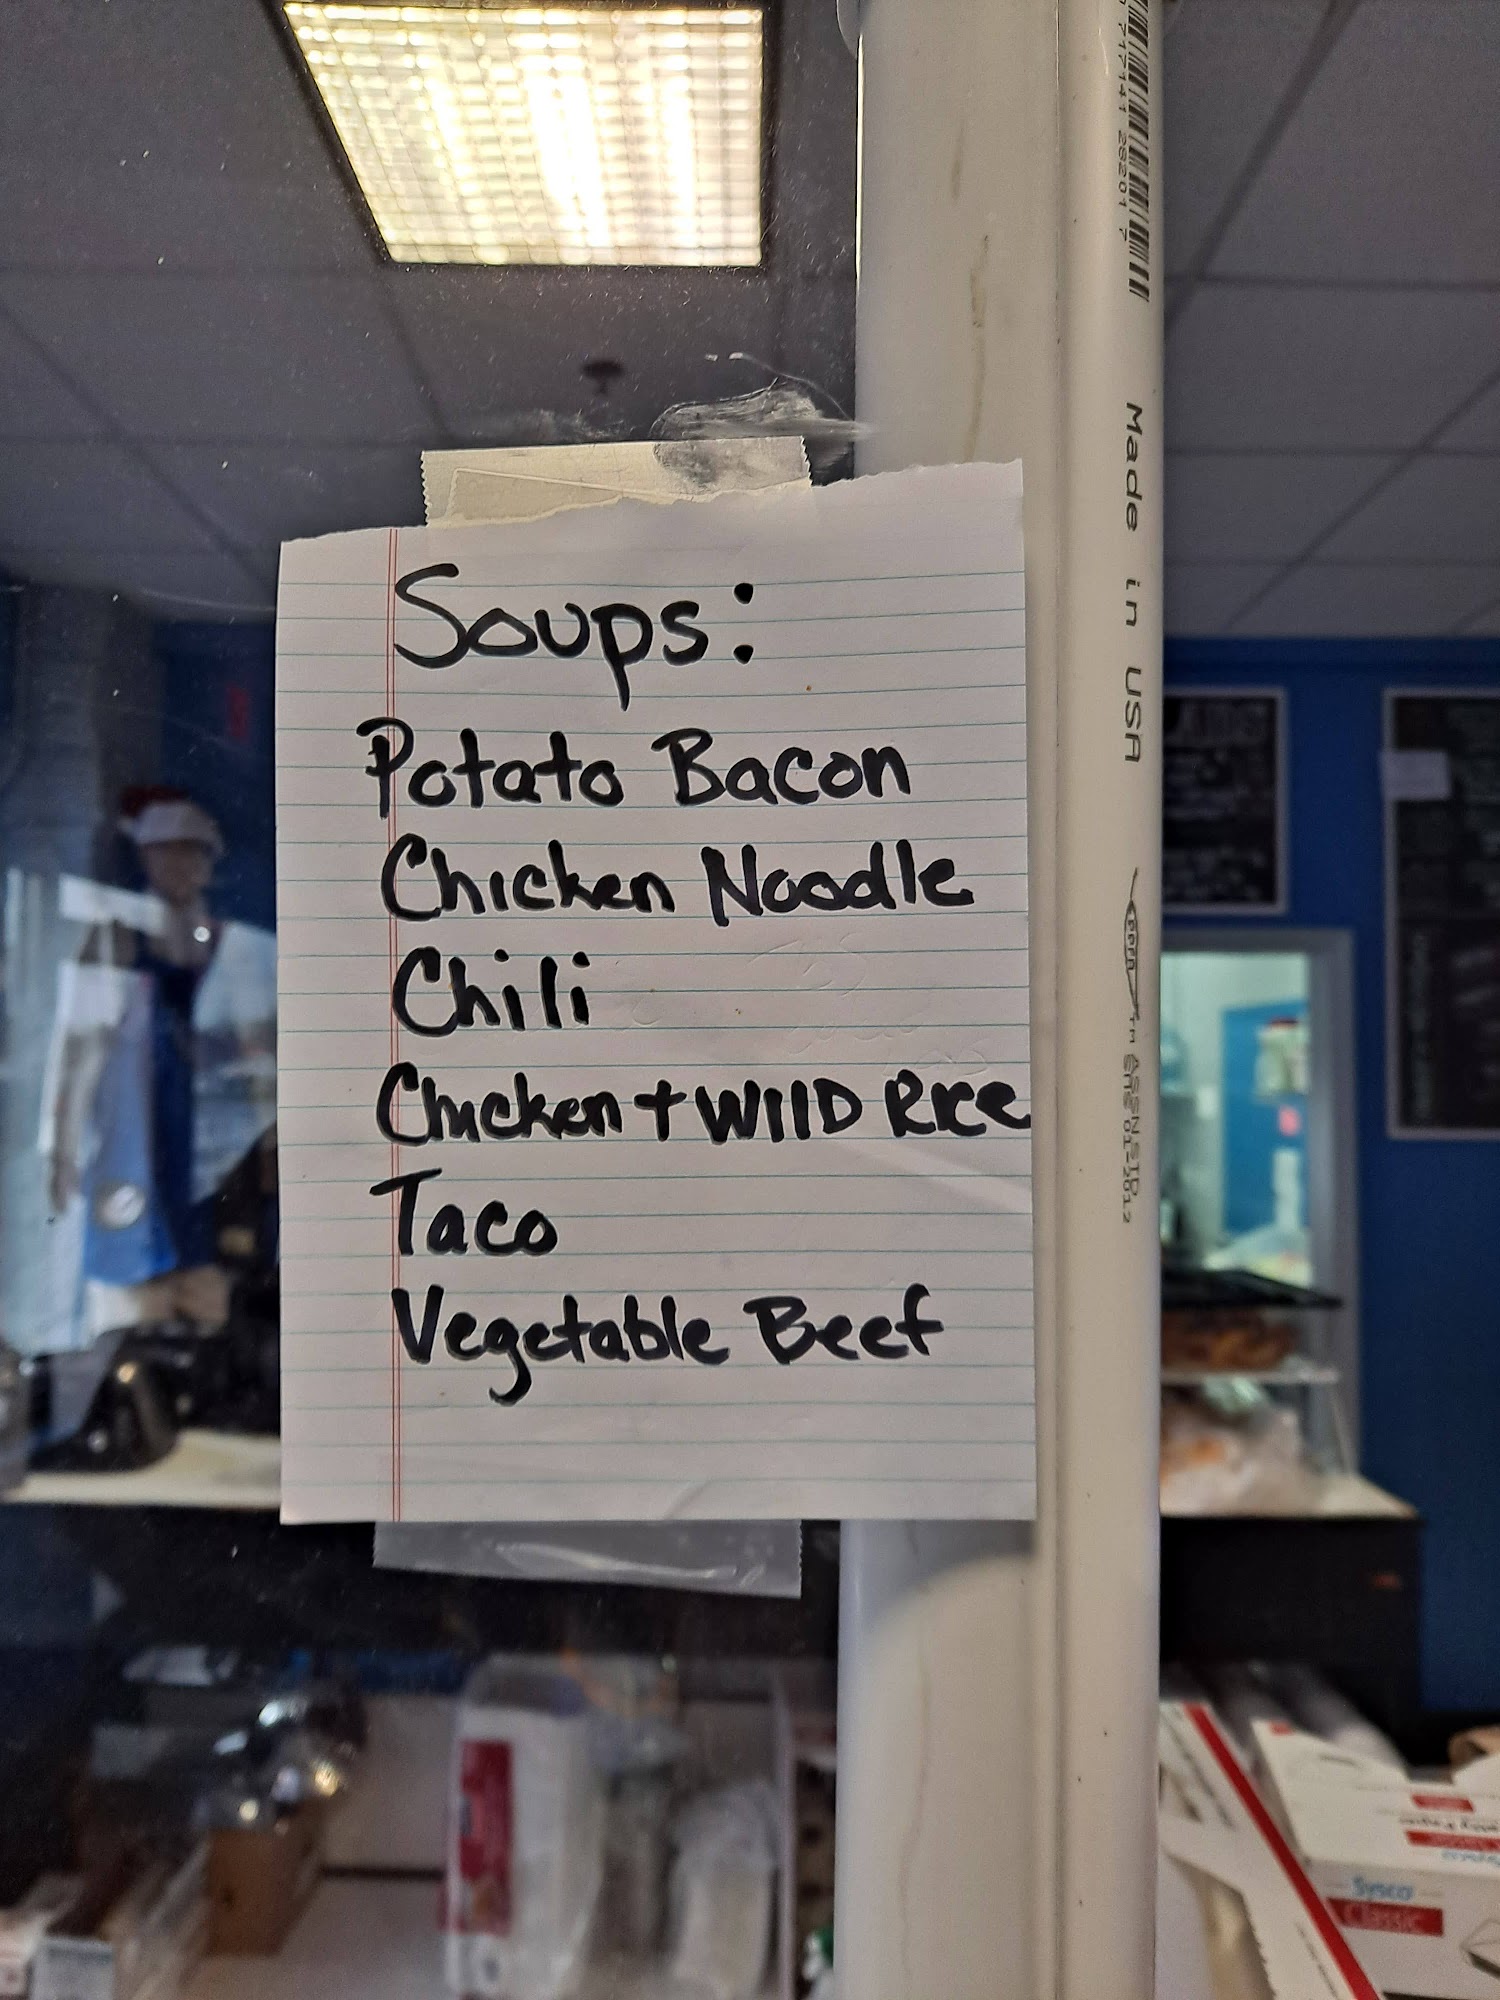 Soups:
Potato Bacon
Chicken Noodle
Chili
Chicken + WIlD Rice
Taco
Vegetable Beef
Made in USA
Sysco
Classic